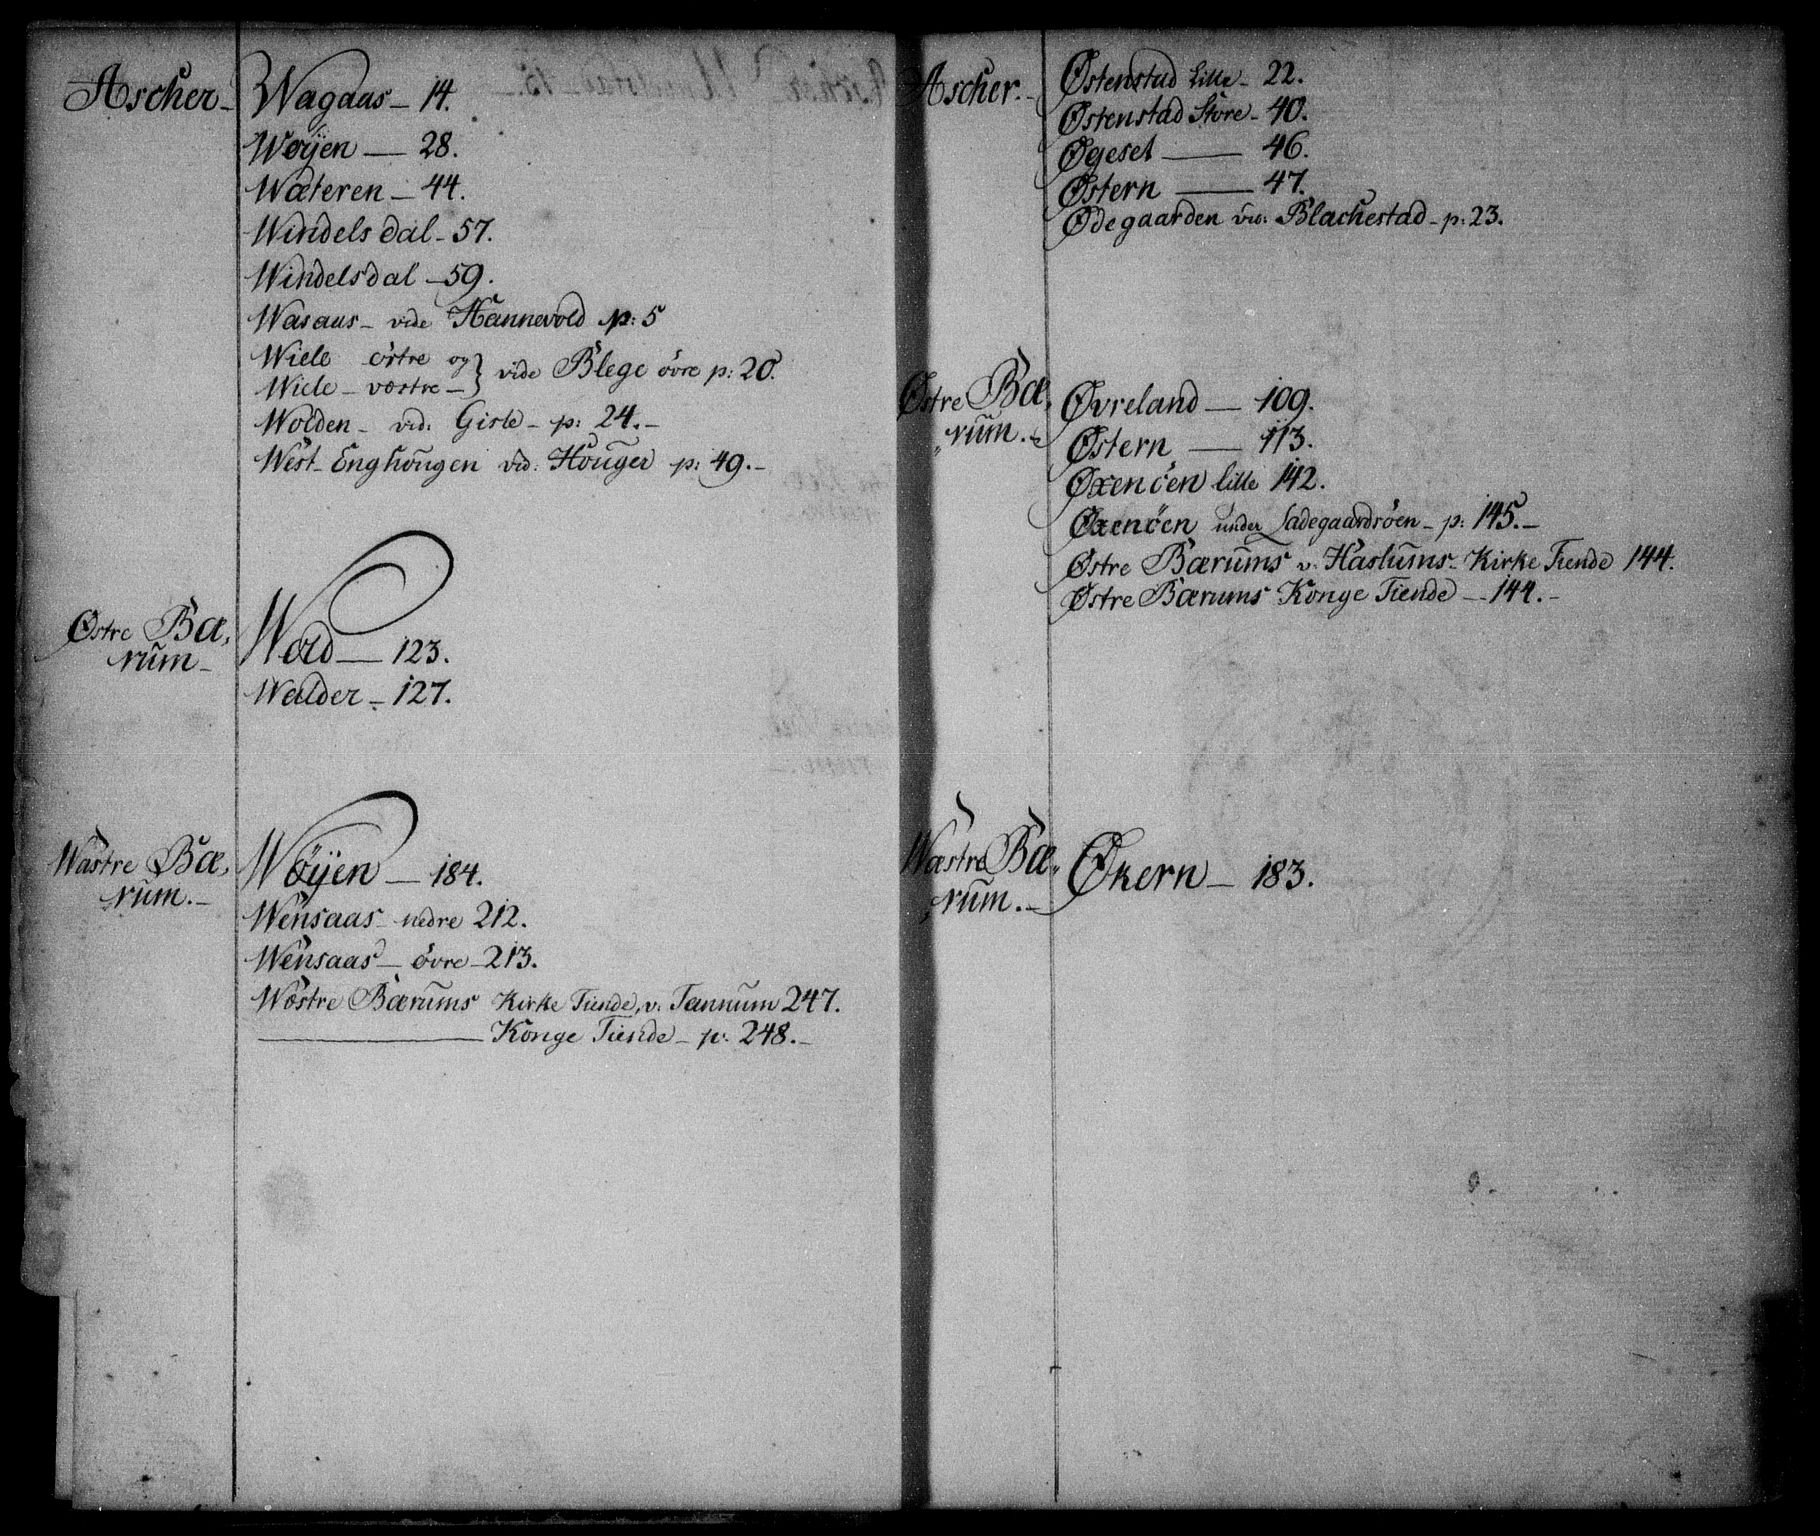 Ascher – Wagaas – 14.
Wøÿen — 28.
Wæteren – 44.
Windels dal – 57.
Windelsdal – 59.
Wasaas – vide Hannevold p: 5
Wiele östre og } vide Blege övre p: 20.
Wiele – væstre –
Wolden – vid: Gisle – p: 24. –
West – Enghougen vid: Houger p: 49. –
Østre Bæ,
rum –
Wold — 123.
Walder – 127.
Wæstre Bæ,
rum. –
Wöÿen — 184.
Wensaas – nedre 212.
Wensaas – övre – 213.
Wæstre Bærums Kirke Tiende, v: Tannum 247.
——— Konge Tiende – p: 248. –
Ascher. – Østenstad lille – 22.
Østenstad Store – 40.
Øgeset —— 46.
Østern —— 47.
Ødegaarden vid: Blachestad – p: 23.
Østre Bæ,
rum. –
Øvreland — 109.
Østern — 113.
Øxenöen lille 142.
Øxenöen under Ladegaardsöen – p: 145. –
Østre Bærums v: Haslums – Kirke Tiende 144.
Østre Bærums Konge Tiende – 144. –
Wæstre Bæ,
rum. –
Økern – 183.